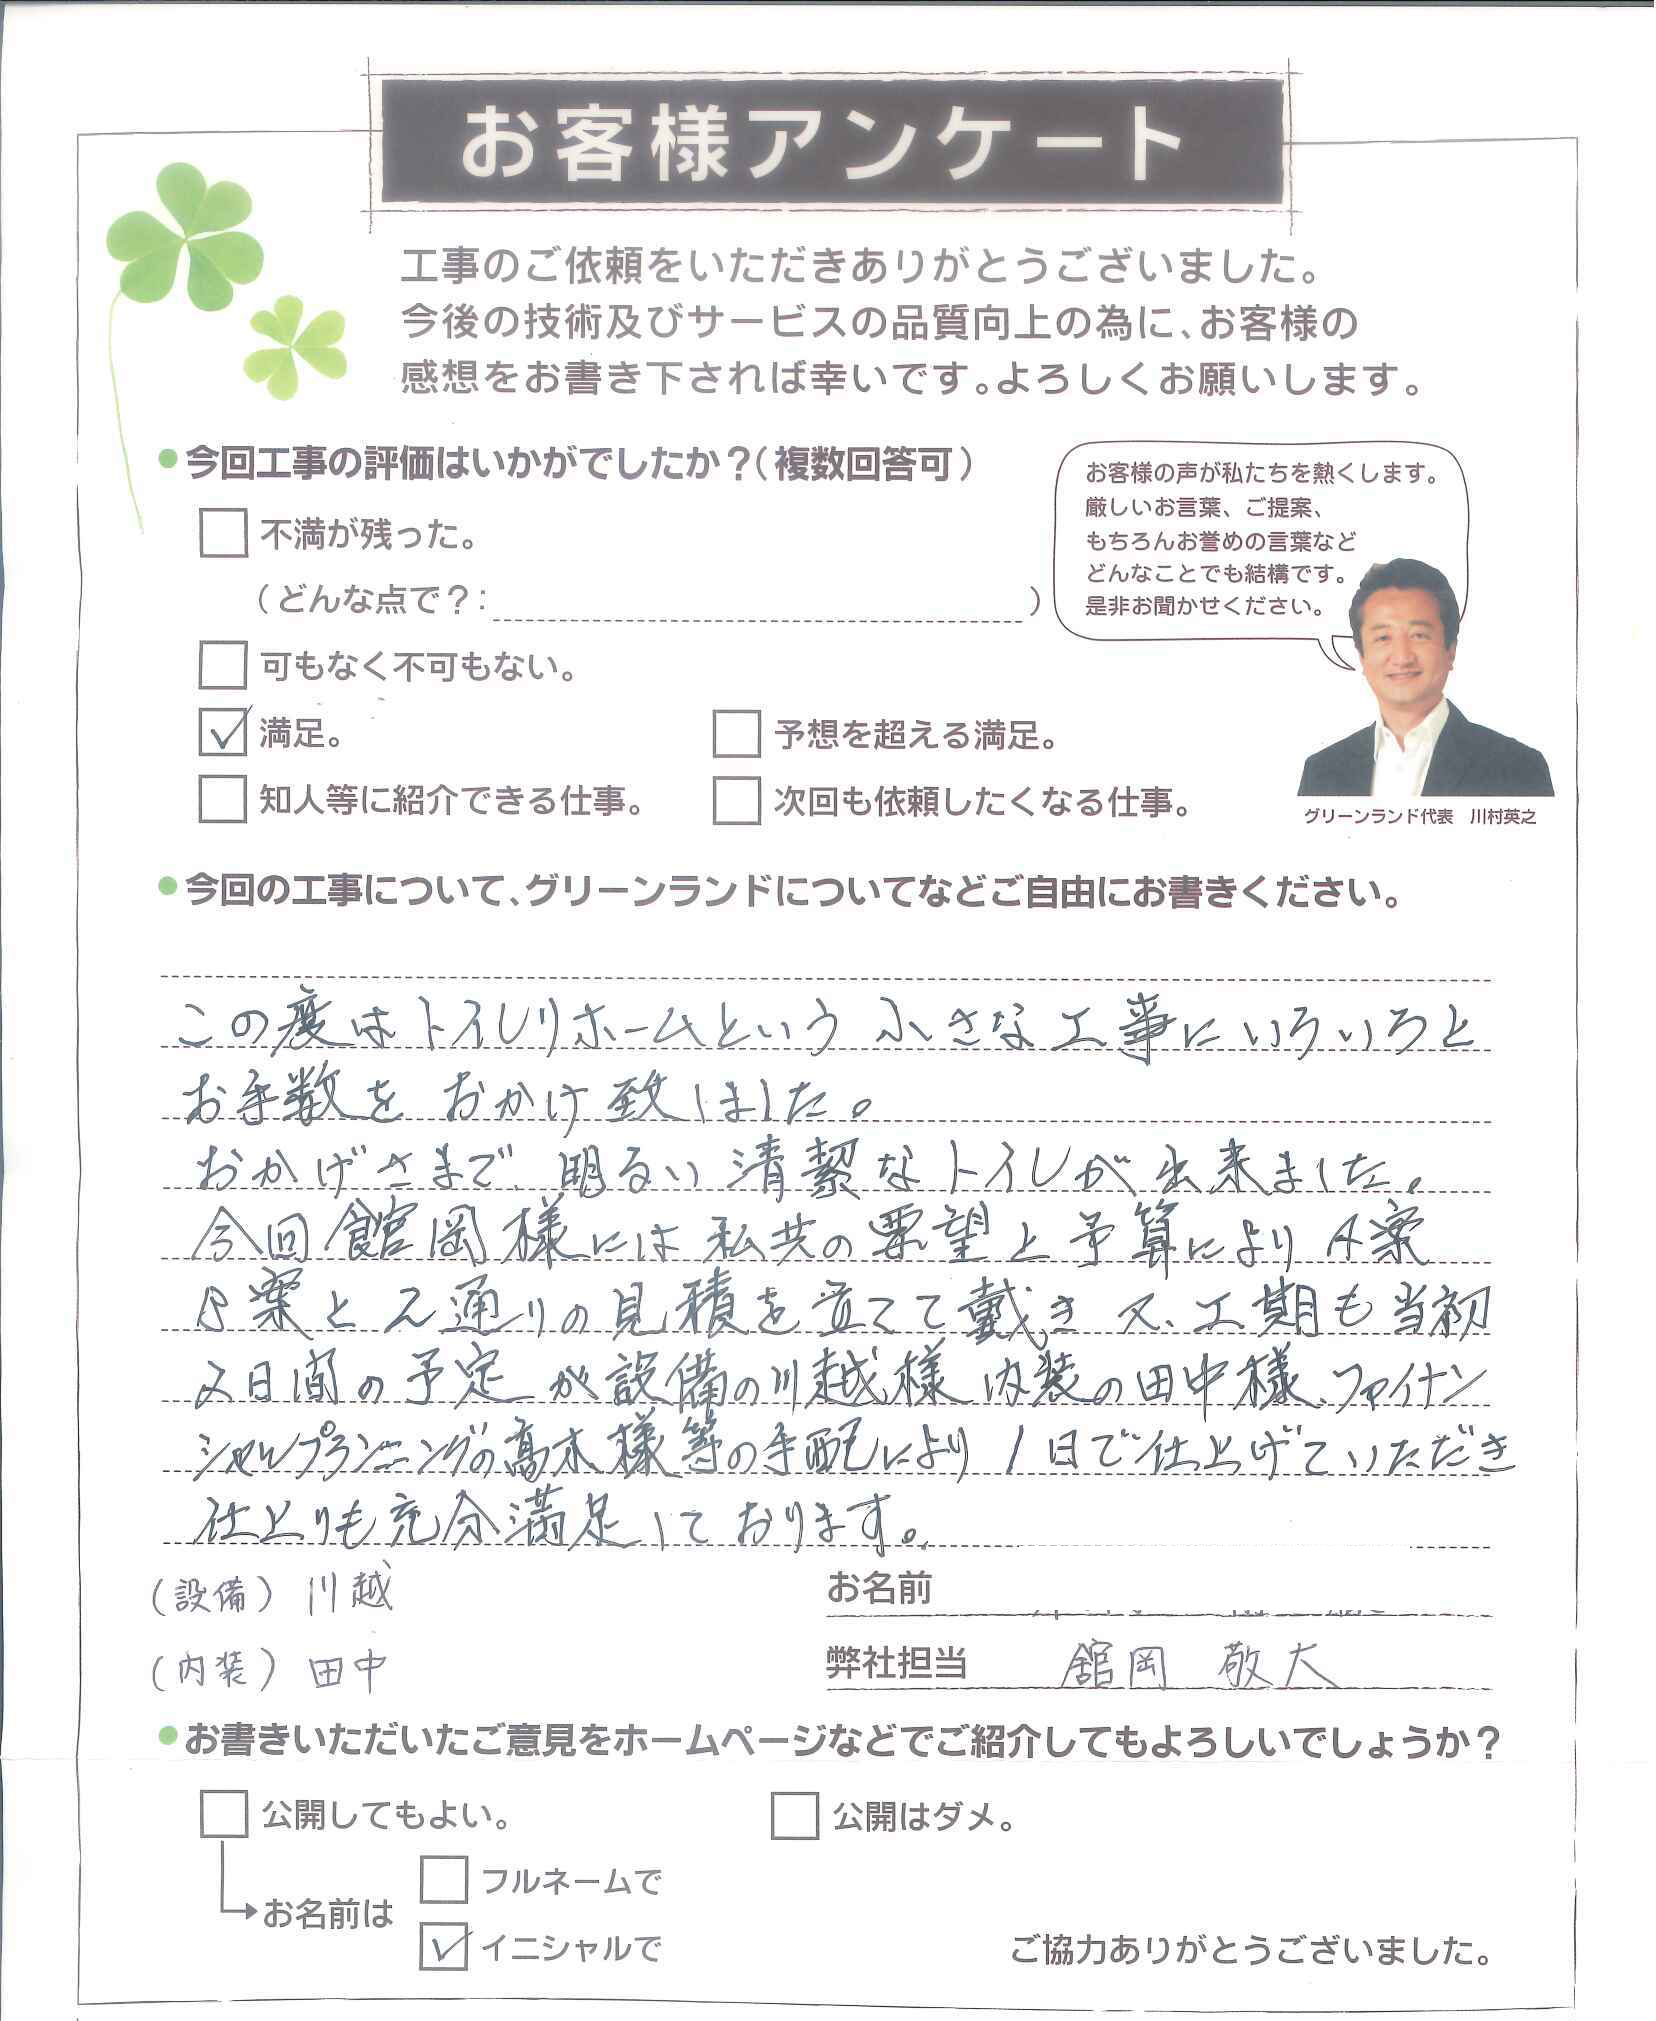 お客様アンケート
工事のご依頼をいただきありがとうございました。
今後の技術及びサービスの品質向上の為に、お客様の
感想をお書き下されば幸いです。よろしくお願いします。
今回工事の評価はいかがでしたか？（複数回答可）
お客様の声が私たちを熱くします。
厳しいお言葉、ご提案、
もちろんお誉めの言葉など
どんなことでも結構です。
是非お聞かせください。
グリーンランド代表　川村英之
不満が残った。
（どんな点で？：　　　　）
可もなく不可もない。
満足。　予想を超える満足。
知人等に紹介できる仕事。　次回も依頼したくなる仕事。
今回の工事について、グリーンランドについてなどご自由にお書きください。
この度はトイレリホームという小さな工事にいろいろと
お手数をおかけ致しました。
おかげさまで、明るい清潔なトイレが出来ました。
今回館岡様には私共の要望と予算によりA案
B案と2通りの見積を立てて戴き又、工期も当初
2日間の予定が設備の川越様内装の田中様、ファイナン
シャルプランニングの高木様等の手配により1日で仕上げていただき
仕上りも充分満足しております。
（設備）川越　お名前
（内装）田中　弊社担当　舘岡　敬大
お書きいただいたご意見をホームページなどでご紹介してもよろしいでしょうか？
公開してもよい。　公開はダメ。
フルネームで
お名前は
イニシャルで　ご協力ありがとうございました。